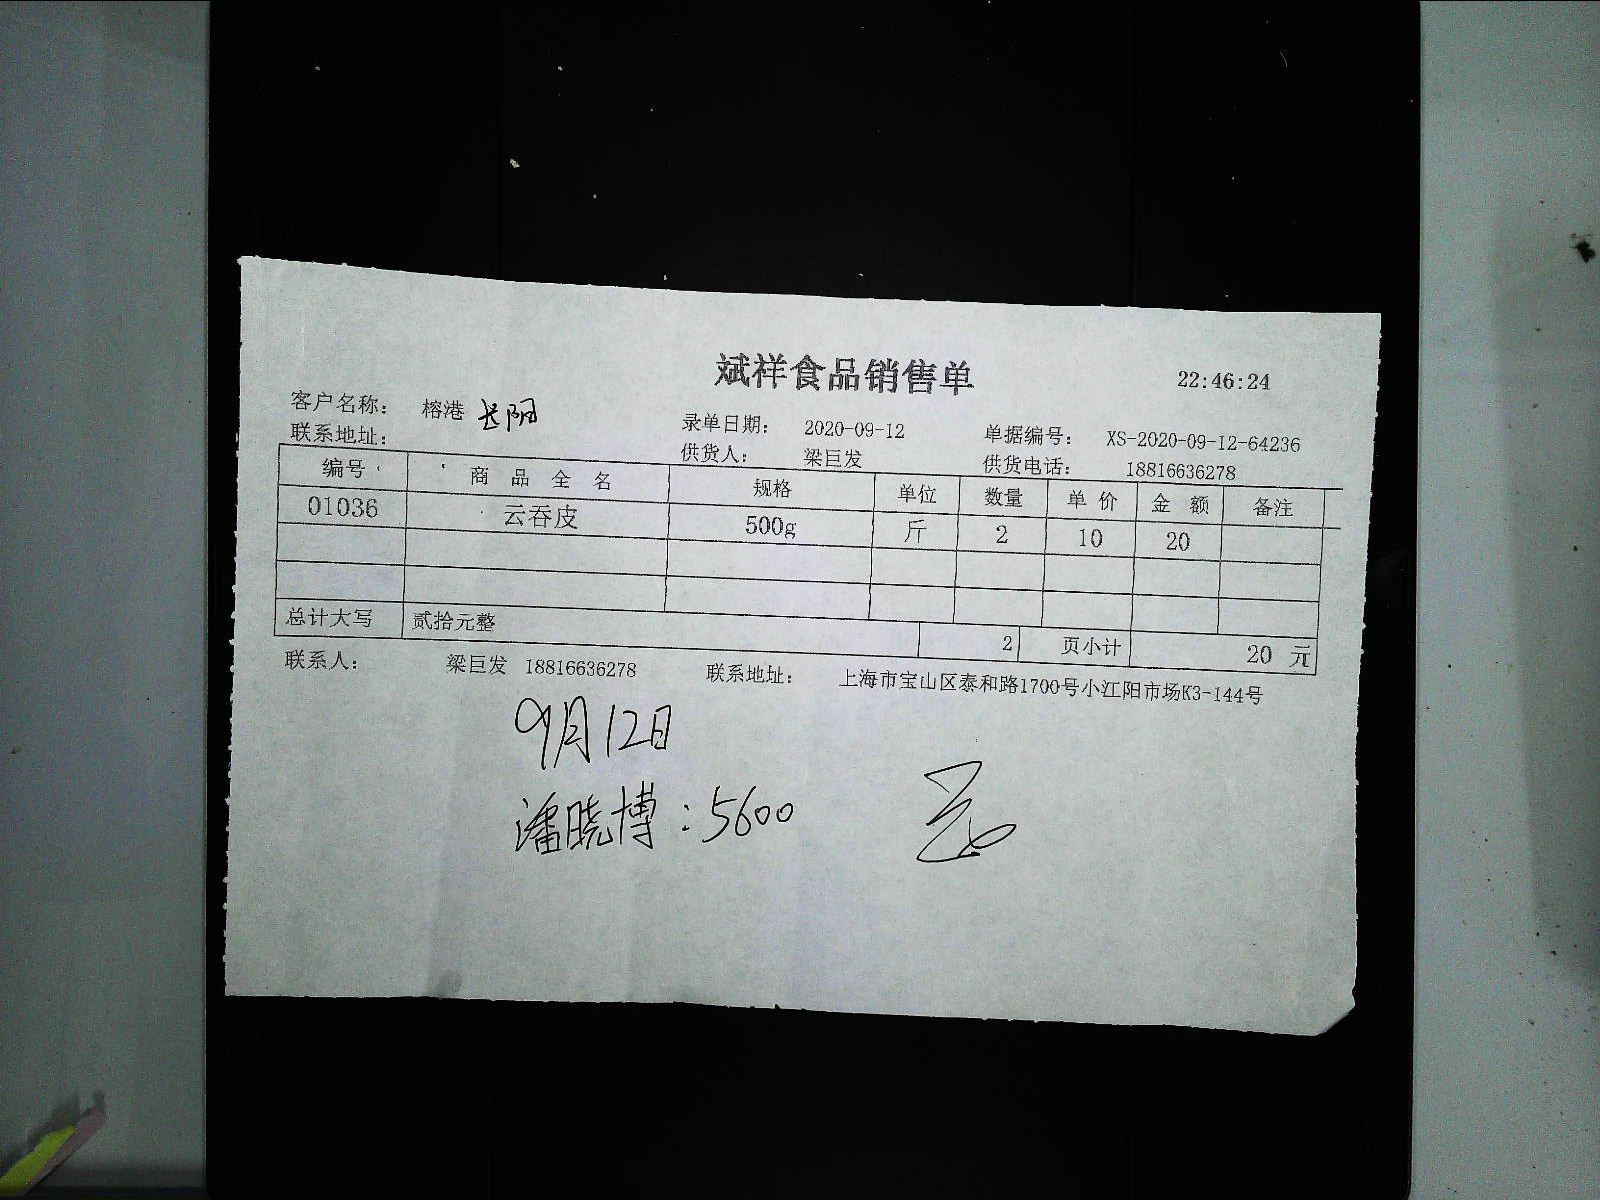 斌祥食品销售单 22:46:24
客户名称： 榕港 长阳 录单日期： 2020-09-12 单据编号： XS-2020-09-12-64236
联系地址： 供货人： 梁巨发 供货电话： 18816636278
编号 商品全名 规格 单位 数量 单价 金额 备注
01036 云吞皮 500g 斤 2 10 20
总计大写 贰拾元整 2 页小计 20 元
联系人： 梁巨发 18816636278 联系地址： 上海市宝山区泰和路1700号小江阳市场K3-144号
9月12日
潘晓博：5600